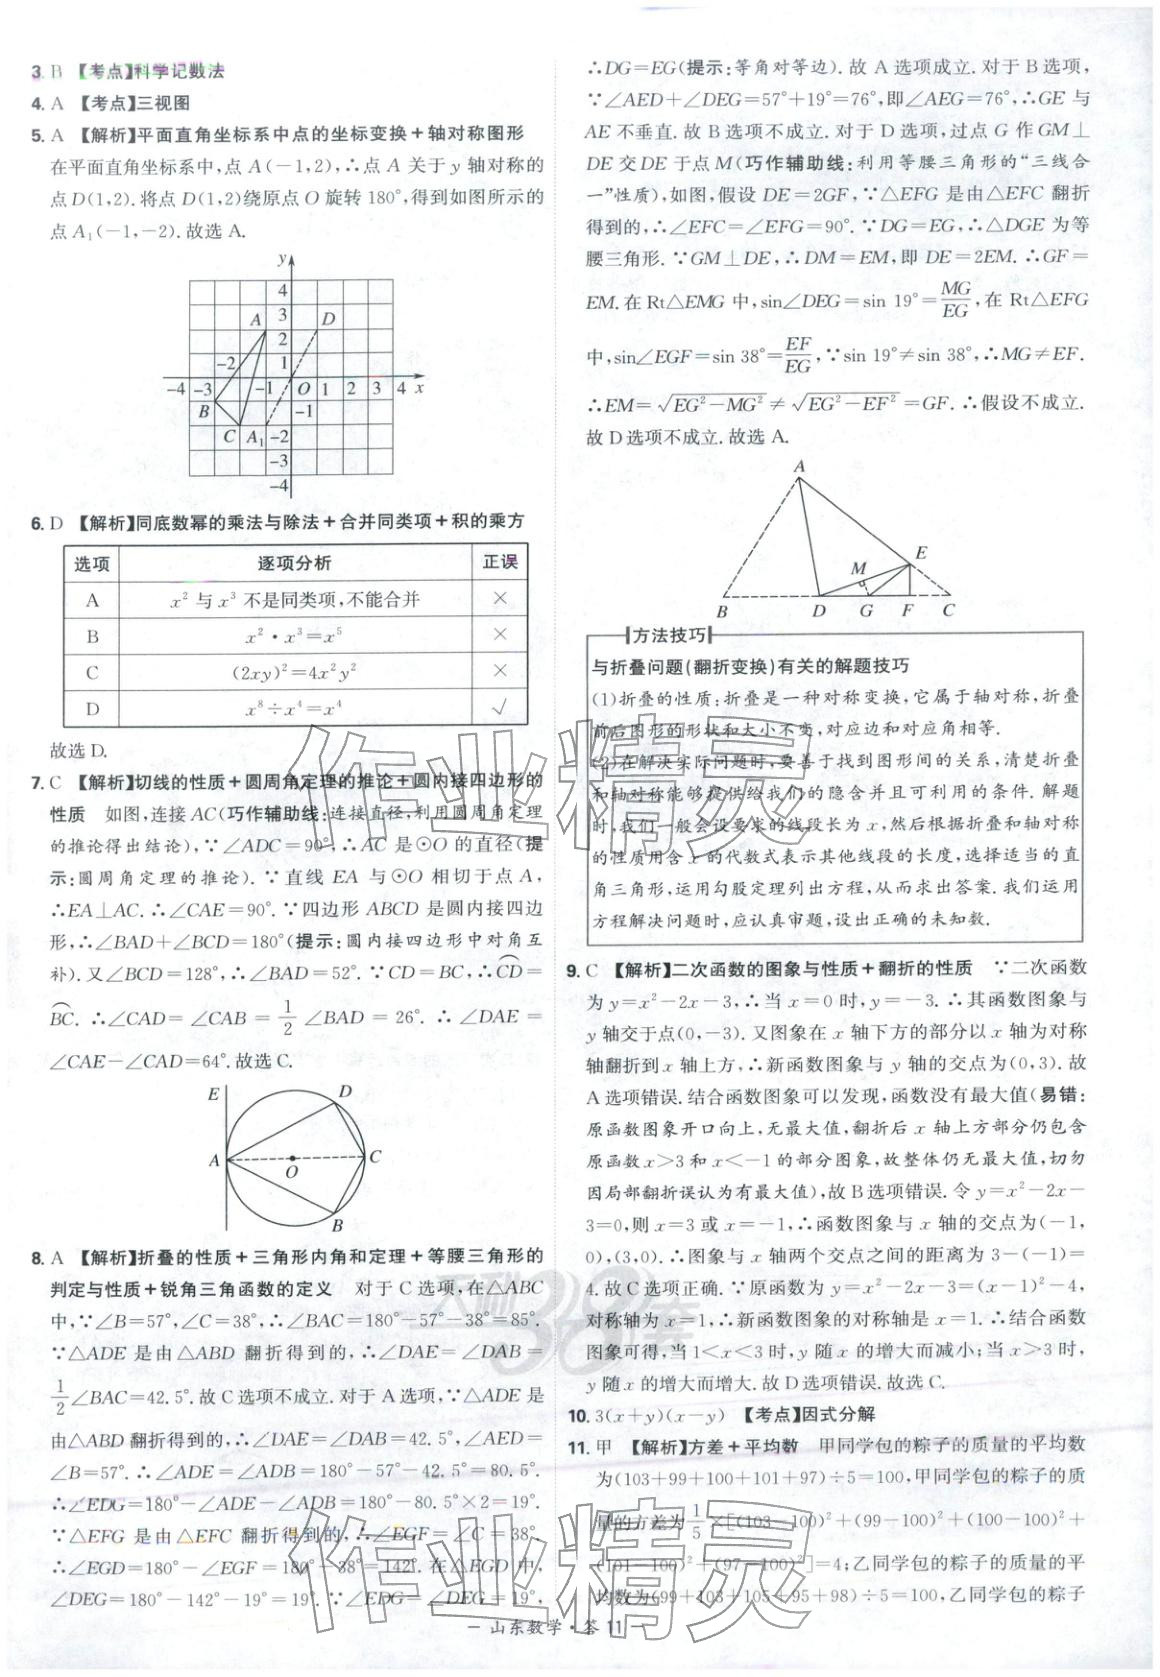 3. B 【考点】科学记数法
4. A 【考点】三视图
5. A 【解析】平面直角坐标系中点的坐标变换+轴对称图形
在平面直角坐标系中,点 A(-1,2),∴点 A 关于 y 轴对称的
点 D(1,2).将点 D(1,2)绕原点 O 旋转 180°,得到如图所示的
点 A₁(-1,-2).故选 A.
y
4
A 3 D
2
-2 1
-4 -3 -1 O 1 2 3 4 x
B -1
C A₁ -2
-3
-4
6. D 【解析】同底数幂的乘法与除法+合并同类项+积的乘方
选项 逐项分析 正误
A x² 与 x³ 不是同类项,不能合并 ×
B x²·x³=x⁵ ×
C (2xy)²=4x²y² ×
D x⁸÷x⁴=x⁴ √
故选 D.
7. C 【解析】切线的性质+圆周角定理的推论+圆内接四边形的
性质 如图,连接 AC(巧作辅助线:连接直径,利用圆周角定理
的推论得出结论),∵∠ADC=90°,∴AC 是⊙O 的直径(提
示:圆周角定理的推论).∵直线 EA 与⊙O 相切于点 A,
∴EA⊥AC.∴∠CAE=90°.∵四边形 ABCD 是圆内接四边
形,∴∠BAD+∠BCD=180°(提示:圆内接四边形中对角互
补).又∠BCD=128°,∴∠BAD=52°.∵CD=BC,∴⌒CD=
⌒BC.∴∠CAD=∠CAB=1/2∠BAD=26°.∴∠DAE=
∠CAE-∠CAD=64°.故选 C.
E D
A O C
B
8. A 【解析】折叠的性质+三角形内角和定理+等腰三角形的
判定与性质+锐角三角函数的定义 对于 C 选项,在△ABC
中,∵∠B=57°,∠C=38°,∴∠BAC=180°-57°-38°=85°.
∵△ADE 是由△ABD 翻折得到的,∴∠DAE=∠DAB=
1/2∠BAC=42.5°.故 C 选项不成立.对于 A 选项,∵△ADE 是
由△ABD 翻折得到的,∴∠DAE=∠DAB=42.5°,∠AED=
∠B=57°.∴∠ADE=∠ADB=180°-57°-42.5°=80.5°.
∴∠EDG=180°-∠ADE-∠ADB=180°-80.5°×2=19°.
∵△EFG 是由△EFC 翻折得到的,∴∠EGF=∠C=38°.
∴∠EGD=180°-∠EGF=180°-38°=142°.在△EGD 中,
∠DEG=180°-142°-19°=19°.∵∠EDG=∠DEG=19°,
∴DG=EG(提示:等角对等边).故 A 选项成立.对于 B 选项,
∵∠AED+∠DEG=57°+19°=76°,即∠AEG=76°,∴GE 与
AE 不垂直.故 B 选项不成立.对于 D 选项,过点 G 作 GM⊥
DE 交 DE 于点 M(巧作辅助线:利用等腰三角形的“三线合
一”性质),如图,假设 DE=2GF,∵△EFG 是由△EFC 翻折
得到的,∴∠EFC=∠EFG=90°.∵DG=EG,∴△DGE 为等
腰三角形.∵GM⊥DE,∴DM=EM,即 DE=2EM.∴GF=
EM.在 Rt△EMG 中,sin∠DEG=sin 19°=MG/EG,在 Rt△EFG
中,sin∠EGF=sin 38°=EF/EG,∵sin 19°≠sin 38°,∴MG≠EF.
∴EM=√(EG²-MG²)≠√(EG²-EF²)=GF.∴假设不成立.
故 D 选项不成立.故选 A.
A
E
M
B D G F C
方法技巧
与折叠问题(翻折变换)有关的解题技巧
(1)折叠的性质:折叠是一种对称变换,它属于轴对称,折叠
前后图形的形状和大小不变,对应边和对应角相等.
(2)在解决实际问题时,要善于找到图形间的关系,清楚折叠
和轴对称能够提供给我们的隐含并且可利用的条件.解题
时,我们一般会设要求的线段长为 x,然后根据折叠和轴对称
的性质用含 x 的代数式表示其他线段的长度,选择适当的直
角三角形,运用勾股定理列出方程,从而求出答案.我们运用
方程解决问题时,应认真审题,设出正确的未知数.
9. C 【解析】二次函数的图象与性质+翻折的性质 ∵二次函数
为 y=x²-2x-3,∴当 x=0 时,y=-3.∴其函数图象与
y 轴交于点(0,-3).又图象在 x 轴下方的部分以 x 轴为对称
轴翻折到 x 轴上方,∴新函数图象与 y 轴的交点为(0,3).故
A 选项错误.结合函数图象可以发现,函数没有最大值(易错:
原函数图象开口向上,无最大值,翻折后 x 轴上方部分仍包含
原函数 x>3 和 x<-1 的部分图象,故整体仍无最大值,切勿
因局部翻折误认为有最大值),故 B 选项错误.令 y=x²-2x-
3=0,则 x=3 或 x=-1,∴函数图象与 x 轴的交点为(-1,
0),(3,0).∴图象与 x 轴两个交点之间的距离为 3-(-1)=
4.故 C 选项正确.∵原函数为 y=x²-2x-3=(x-1)²-4,
对称轴为 x=1,∴新函数图象的对称轴是 x=1.∴结合函数
图象可得,当 1<x<3 时,y 随 x 的增大而减小;当 x>3 时,
y 随 x 的增大而增大.故 D 选项错误.故选 C.
10. 3(x+y)(x-y) 【考点】因式分解
11. 甲 【解析】方差+平均数 甲同学包的粽子的质量的平均数
为(103+99+100+101+97)÷5=100,甲同学包的粽子的质
量的方差为1/5×[(103-100)²+(99-100)²+(100-100)²+
(101-100)²+(97-100)²]=4;乙同学包的粽子的质量的平
均数为(99+103+105+95+98)÷5=100,乙同学包的粽子
— 山东数学·答 11 —
作业精灵
作业精灵
天利38套